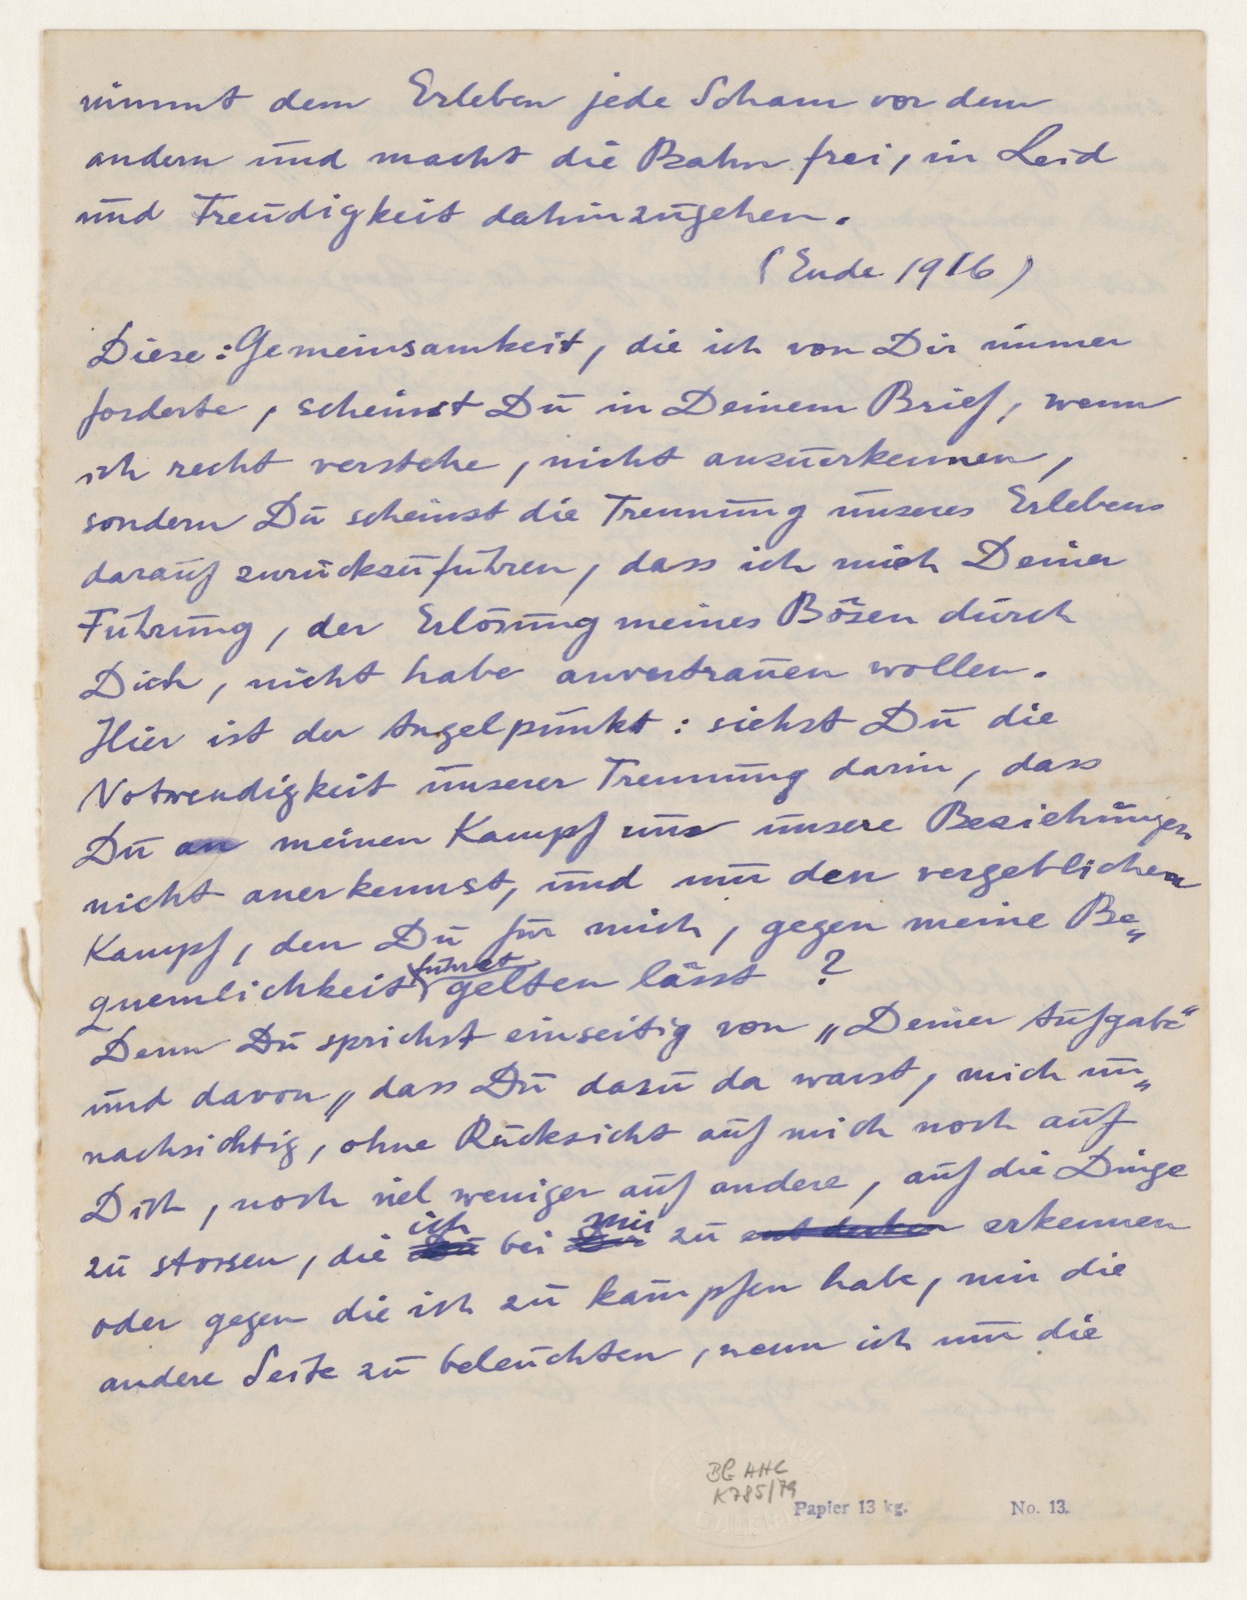 nimmt dem Erleben jede Scham vor dem
andern und macht die Bahn frei, in Leid
und Freudigkeit dahinzugehen.
(Ende 1916)
Diese: Gemeinsamkeit, die ich von Dir immer
forderte, scheinst Du in Deinem Brief, wenn
ich recht verstehe, nicht anzuerkennen,
sondern Du scheinst die Trennung unseres Erlebens
darauf zurückzuführen, dass ich mich Deiner
Führung, der Erlösung meines Bösen durch
Dich, nicht habe anvertrauen wollen.
Hier ist der Angelpunkt: siehst Du die
Notwendigkeit unserer Trennung darin, dass
Du an meinen Kampf um unsere Beziehungen
nicht anerkennst, und nur den vergeblichen
Kampf, den Du für mich, gegen meine Be„
quemlichkeit führst gelten lässt ?
Denn Du sprichst einseitig von „Deiner Aufgabe"
und davon „dass Du dazu da warst, mich un„
nachsichtig, ohne Rücksicht auf mich noch auf
Dich, noch viel weniger auf andere, auf die Dinge
zu stossen, die ich Du bei mir Dir zu entdecken erkennen
oder gegen die ich zu kämpfen habe, mir die
andere Seite zu beleuchten, wenn ich nur die
BG AHC
K785/79
Papier 13 kg. No. 13.